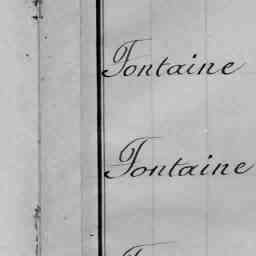 Fontaine
Fontaine